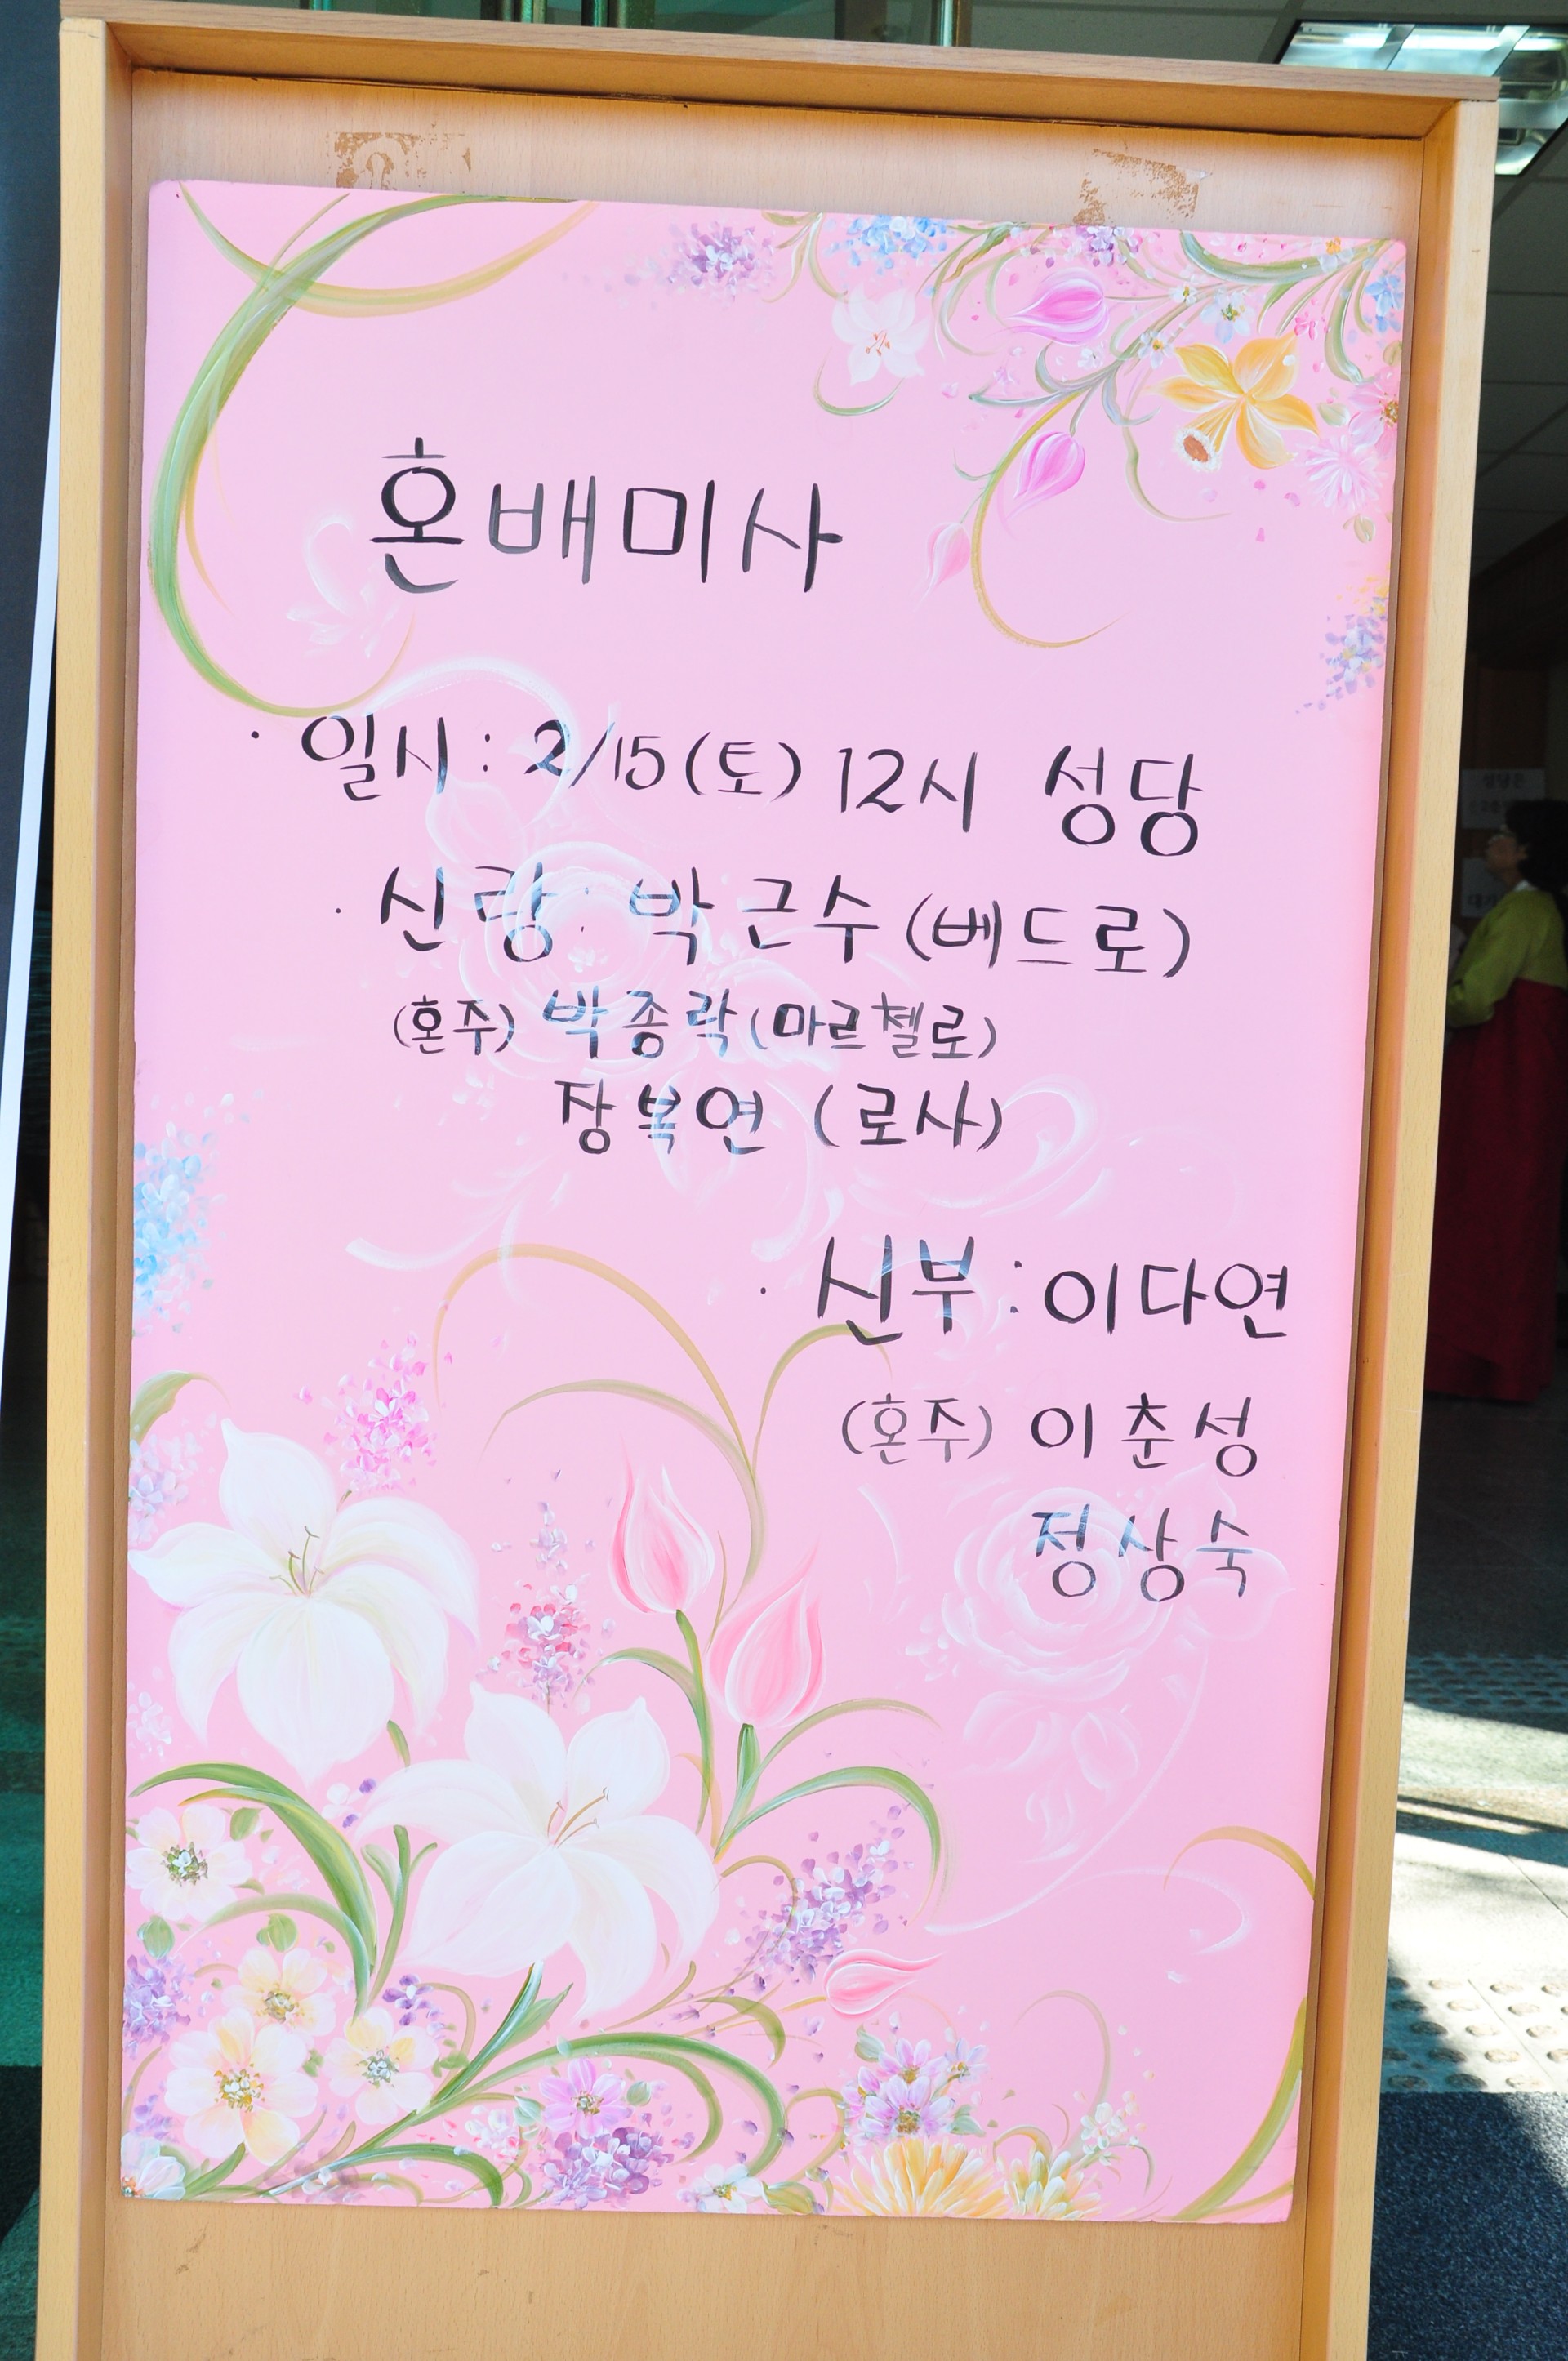 혼배미사
· 일시 : 2/15 (토) 12시 성당
· 신랑 : 박근수 (베드로)
(혼주) 박종락 (마르첼로)
장복연 (로사)
· 신부 : 이다연
(혼주) 이춘성
정상숙
성당은